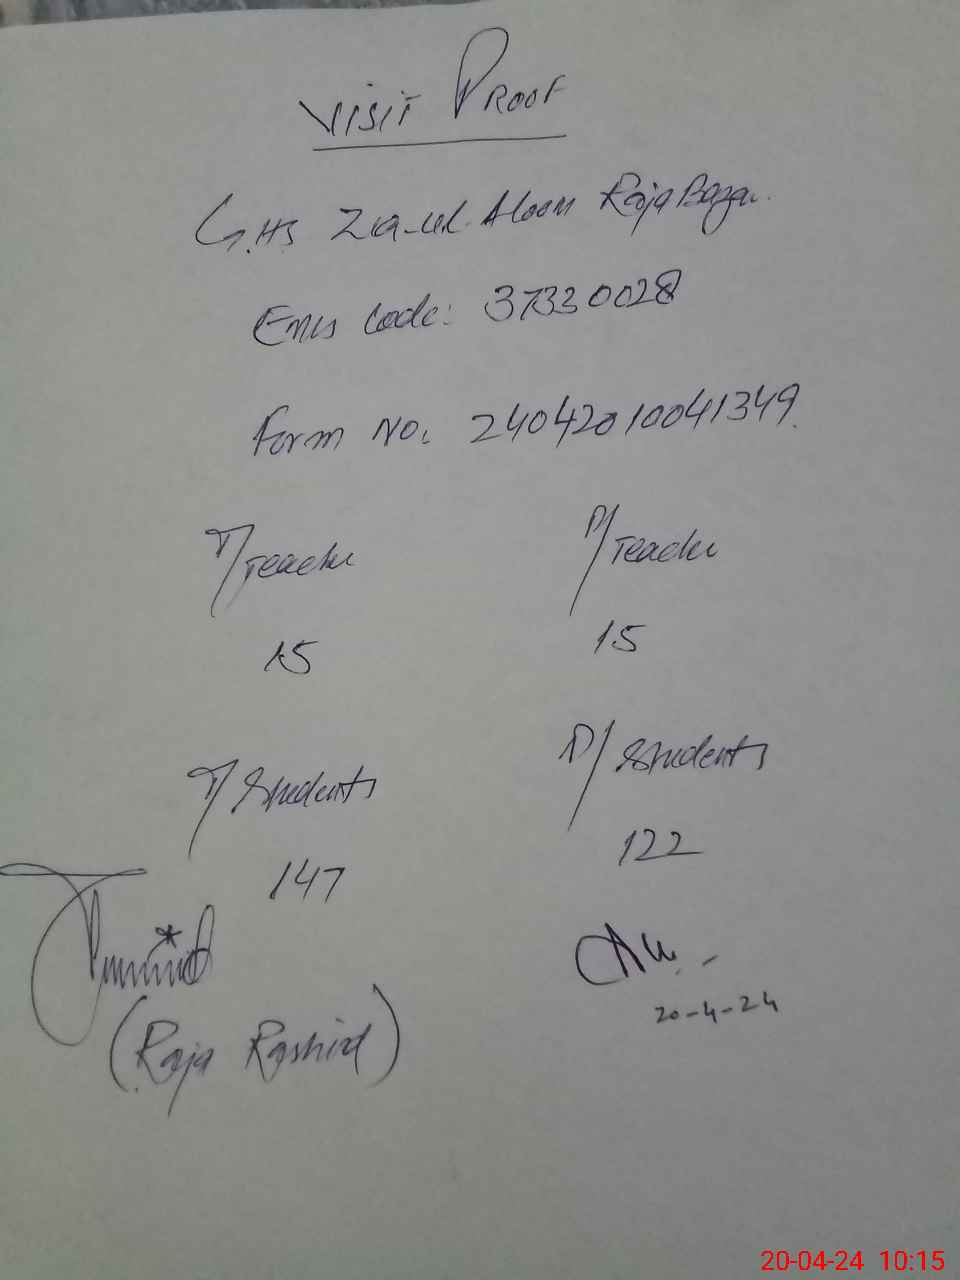 Visit Proof
G.HS Zia-ul-Aloom Raja Bazar.
Emis Code: 37330028
Form No. 24042010041349.
T/Teacher P/Teacher
15 15
T/Students P/Students
147 122
20-4-24
(Raja Rashid)
20-04-24 10:15